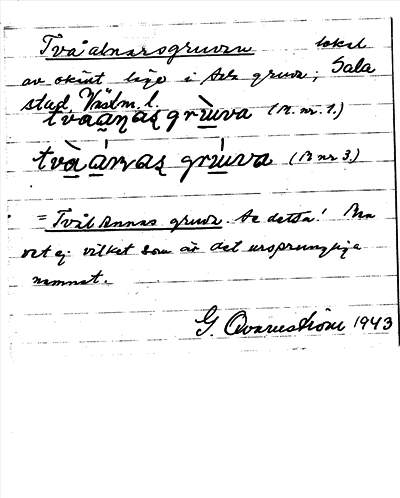 Två alnarsgruvan lokal
av okänt läge i Sala gruva; Sala
stad, Västm. l.
tvaaṇas grùva (M. nr. 1.)
tvà árvas grùva (M nr 3.)
= Två Annas gruva. Se detta! Man
vet ej vilket som är det ursprungliga
namnet.
G. Qvarnström 1943